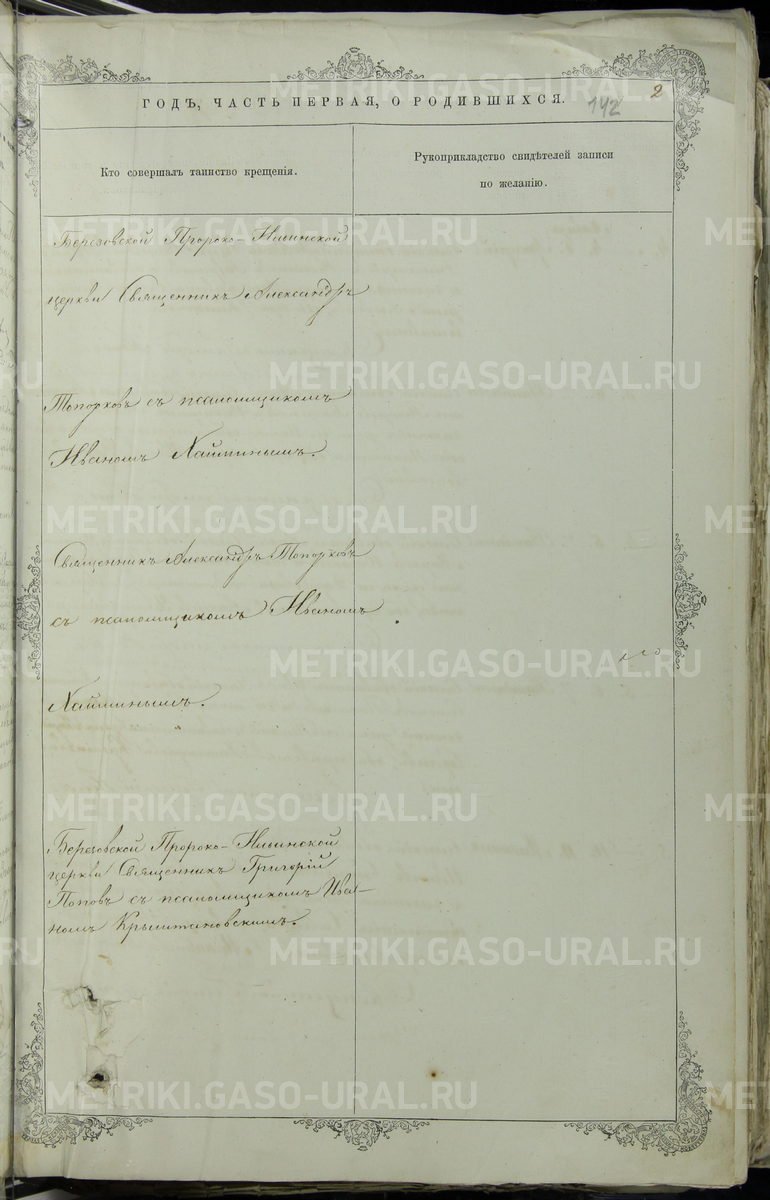 ГОДЪ, ЧАСТЬ ПЕРВАЯ, О РОДИВШИХСЯ.
142
2
Кто совершалъ таинство крещенія.
Рукоприкладство свидѣтелей записи
по желанію.
Березовской Пророко-Ильинской
церкви Священникъ Александръ
Топорковъ съ псаломщикомъ
Иваномъ Наймшнымъ.
Священникъ Александръ Топорковъ
съ псаломщикомъ Иваномъ
Березовской Пророко-Ильинской
церкви Священникъ Григорій
Поповъ съ псаломщикомъ Ива-
номъ Крыштановскимъ.
METRIKI.GASO-URAL.RU